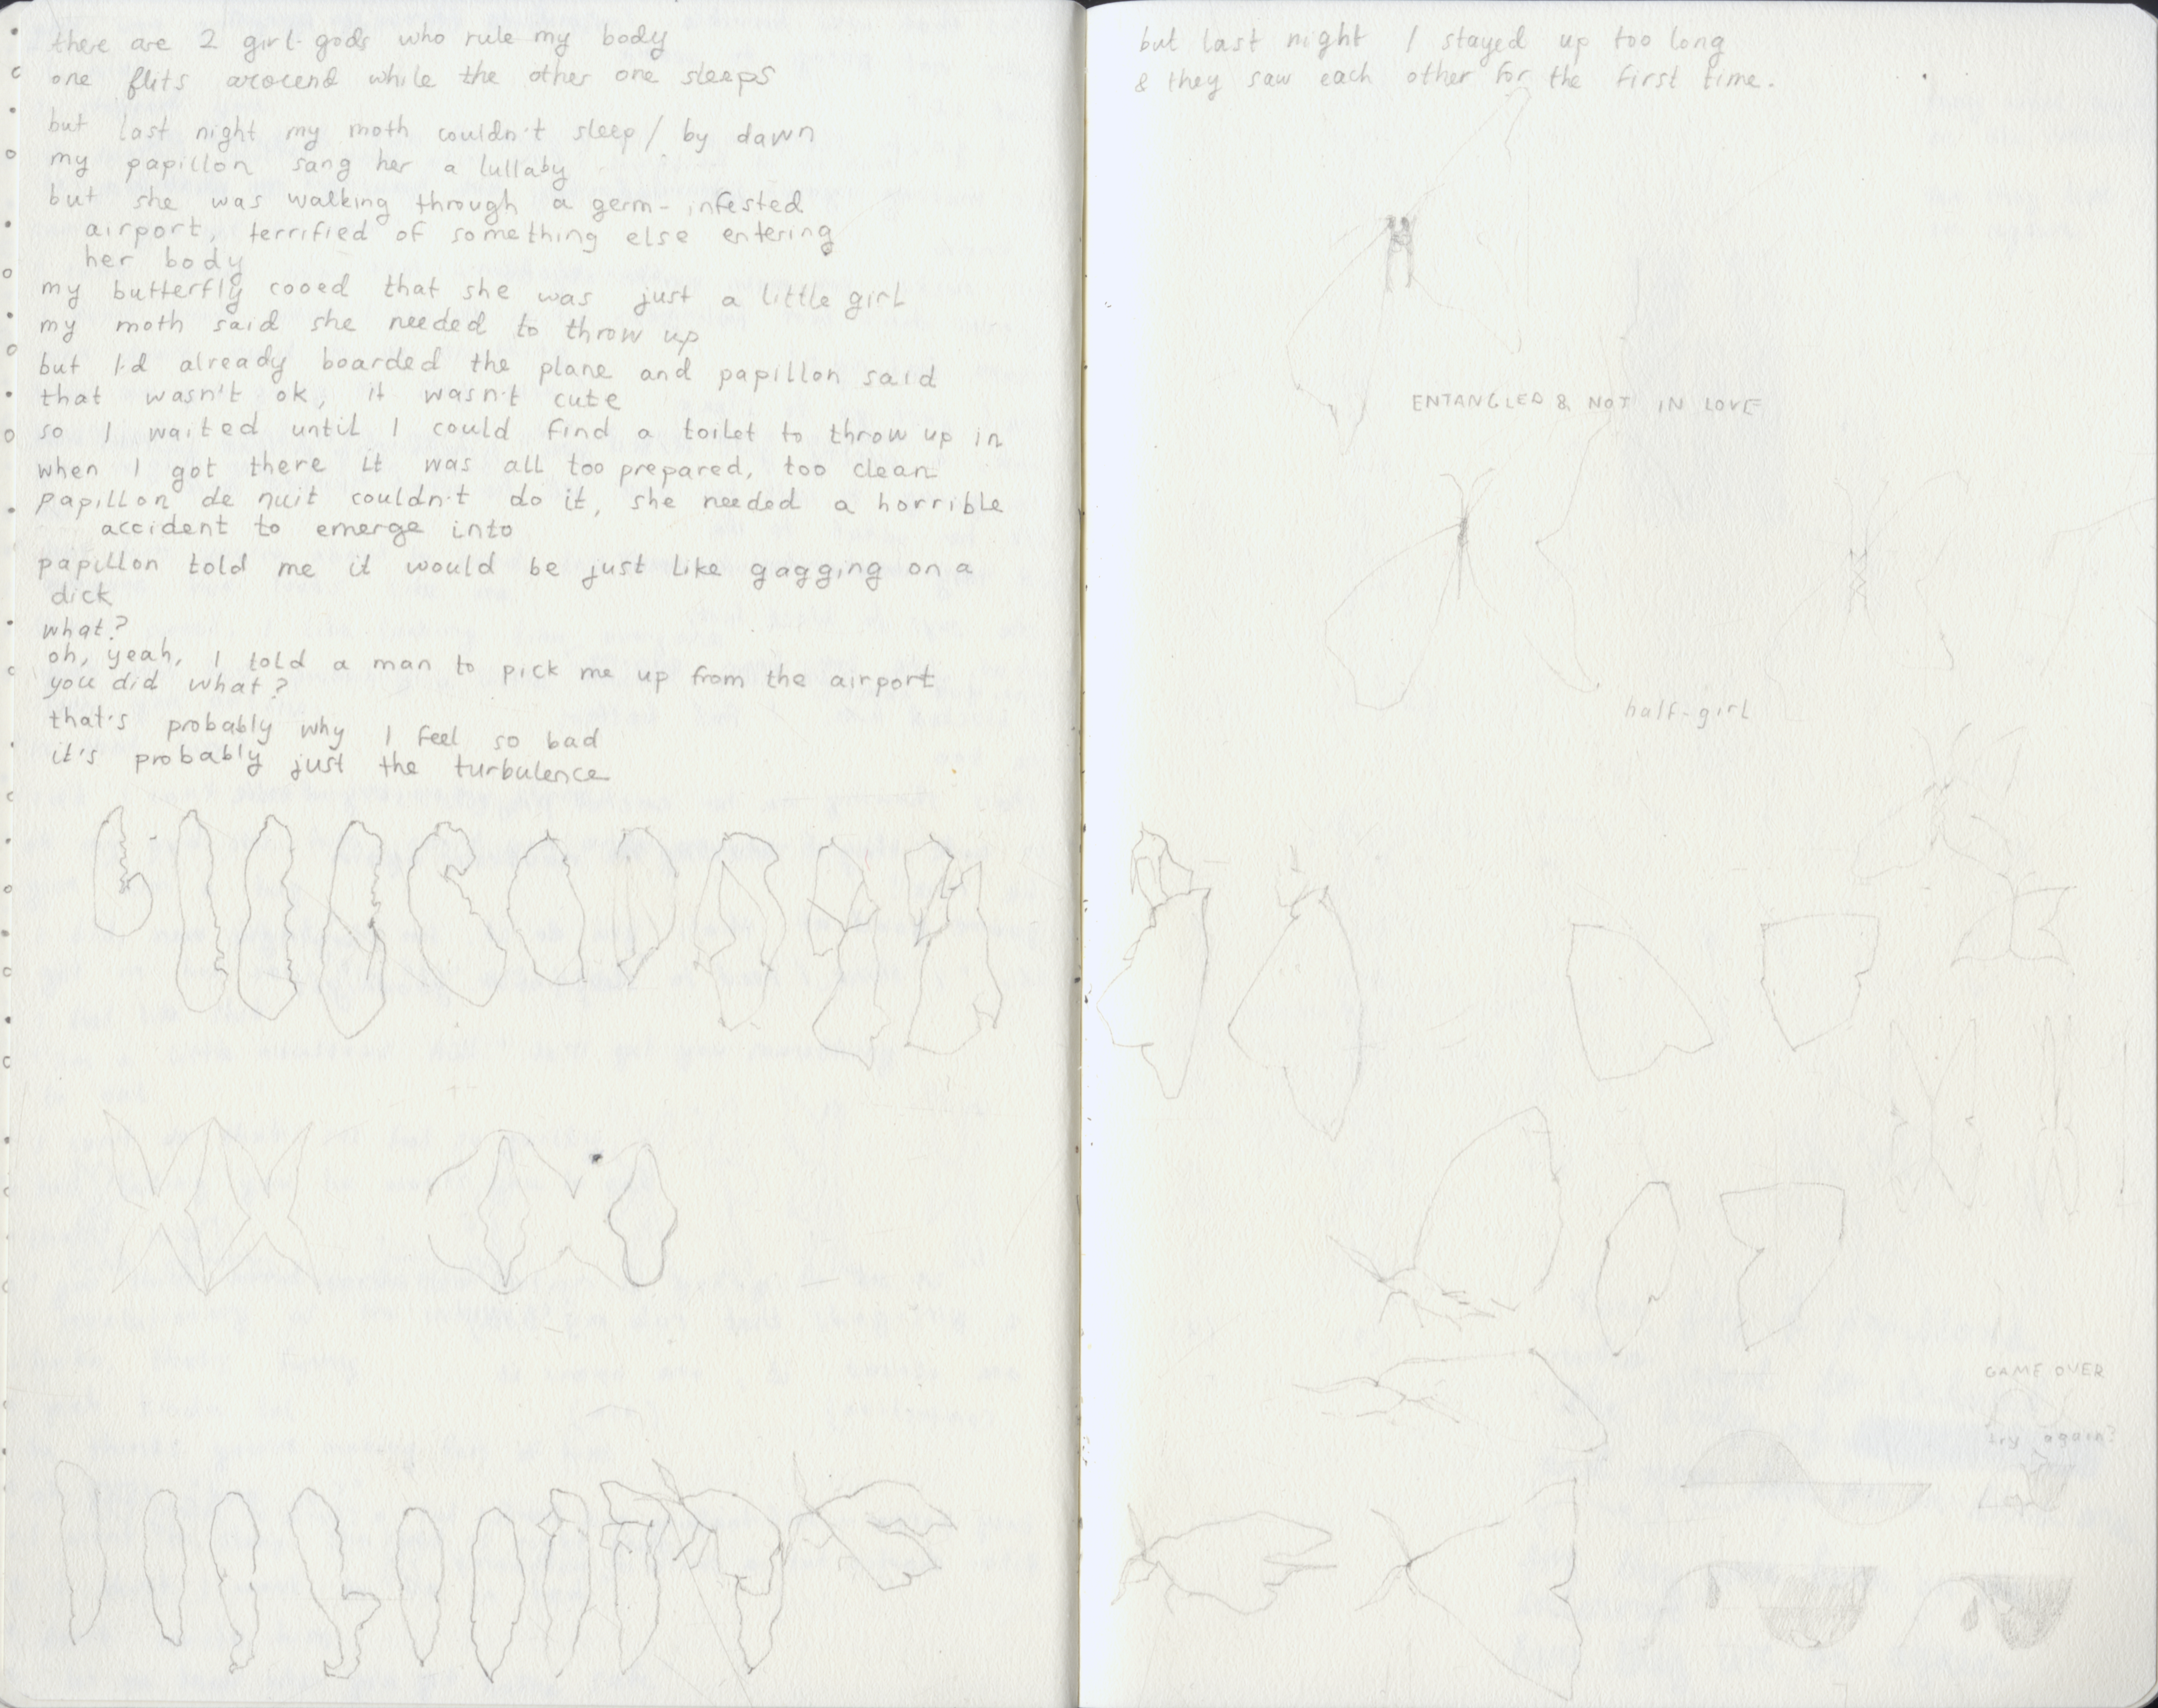 there are 2 girl-gods who rule my body
one flits around while the other one sleeps
but last night my moth couldn't sleep / by dawn
my papillon sang her a lullaby
but she was walking through a germ-infested
airport, terrified of something else entering
her body
my butterfly cooed that she was just a little girl
my moth said she needed to throw up
but I'd already boarded the plane and papillon said
that wasn't ok, it wasn't cute
so I waited until I could find a toilet to throw up in
when I got there it was all too prepared, too clean
papillon de nuit couldn't do it, she needed a horrible
accident to emerge into
papillon told me it would be just like gagging on a
dick
what?
oh, yeah, I told a man to pick me up from the airport
you did what?
that's probably why I feel so bad
it's probably just the turbulence
but last night I stayed up too long
& they saw each other for the first time.
ENTANGLED & NOT IN LOVE
half-girl
GAME OVER
try again?